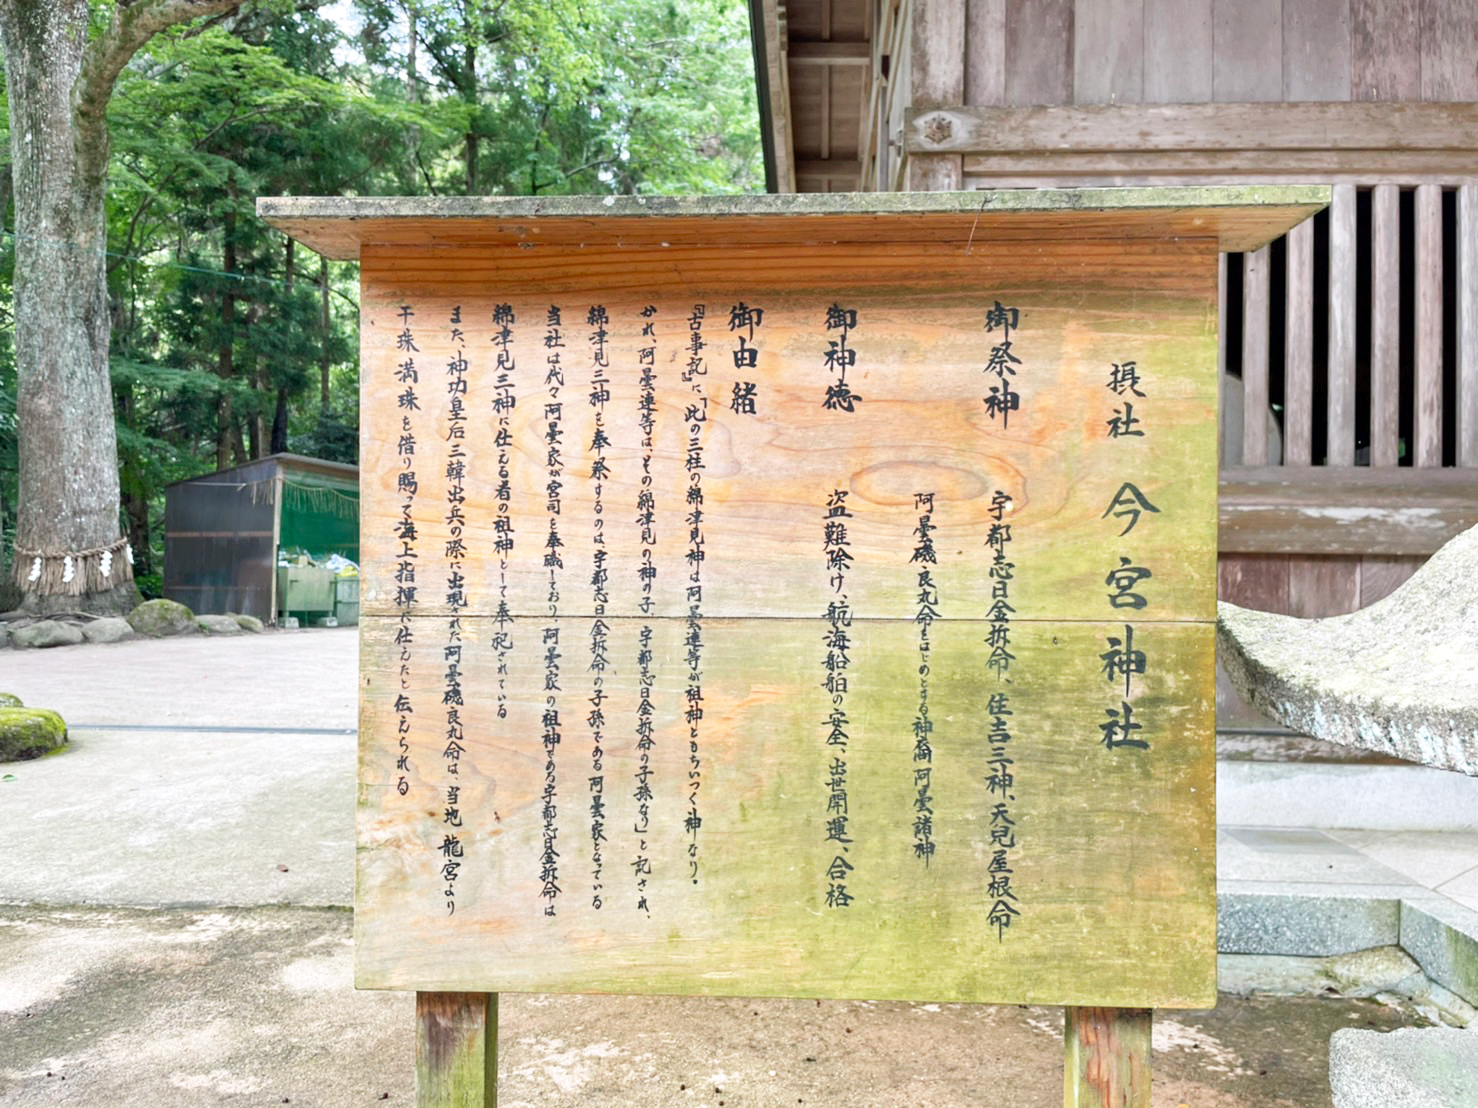 摂社 今宮神社
御祭神 宇都志日金拆命、住吉三神、天兒屋根命
阿曇磯良丸命をはじめとする神裔阿曇諸神
御神徳 盗難除け、航海船舶の安全、出世開運、合格
御由緒
『古事記』に、「此の三柱の綿津見神は阿曇連等が祖神ともちいつく神なり。
かれ、阿曇連等は、その綿津見の神の子、宇都志日金拆命の子孫なり」と記され、
綿津見三神を奉祭するのは宇都志日金拆命の子孫である阿曇家となっている
当社は代々阿曇家が宮司を奉職しており、阿曇家の祖神である宇都志日金拆命は
綿津見三神に仕える者の祖神として奉祀されている
また、神功皇后三韓出兵の際に出現された阿曇磯良丸命は、当地龍宮より
干珠満珠を借り賜って海上指揮に仕えたと伝えられる